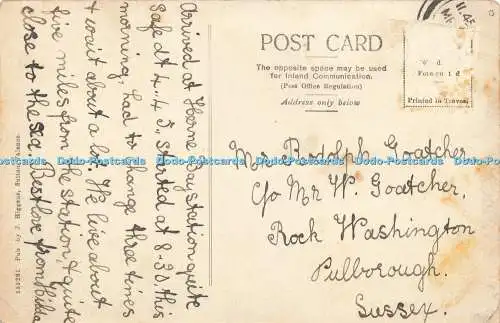 Arrived at Herne Bay station quite
safe at 4.45, started at 8-30 this
morning, had to change three times
& wait about a lot. We live about
five miles from the station & quite
close to the sea. Best love from Hilda
POST CARD
The opposite space may be used
for Inland Communication.
(Post Office Regulation)
Address only below
Printed in
Mr Rodolph Goatcher
C/o Mr W. Goatcher,
Rock Washington
Pulborough.
Sussex.
Dodo-Postcards Dodo-Postcards Dodo-Postcards Dodo-Postcards Dodo-Postcards
Dodo-Postcards Dodo-Postcards Dodo-Postcards Dodo-Postcards Dodo-Postcards